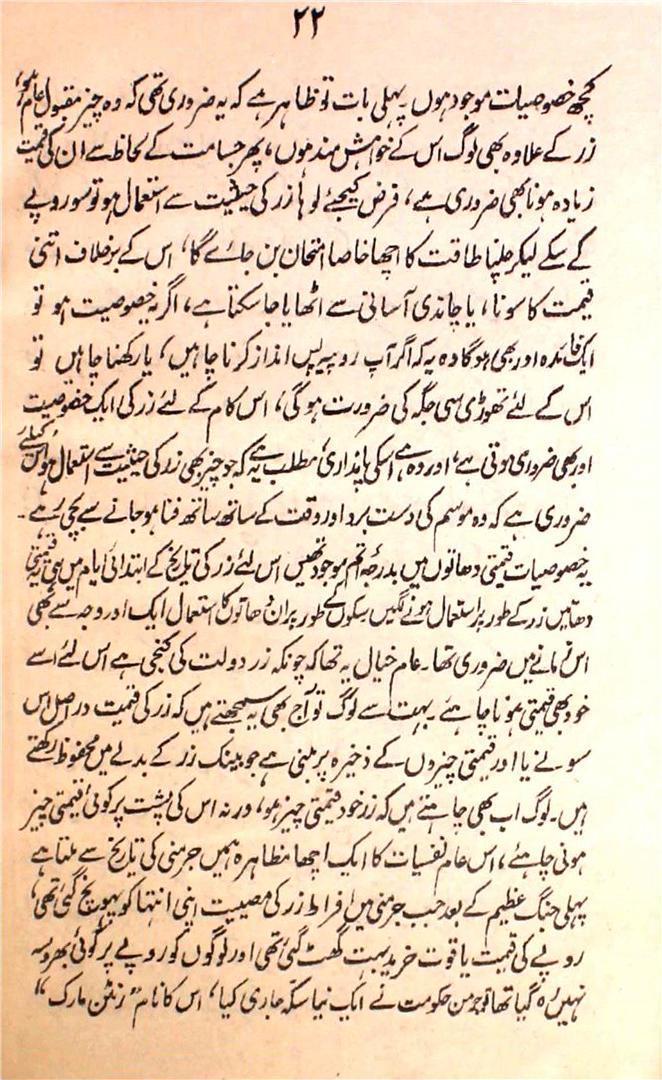 ۲۲
کچھ خصوصیات موجود ہوں۔ پہلی بات تو ظاہر ہے کہ یہ ضروری تھی کہ وہ چیز مقبول عام ہو،
زر کے علاوہ بھی لوگ اس کے خواہش مند ہوں، پھر جسامت کے لحاظ سے ان کی قیمت
زیادہ ہونا بھی ضروری ہے، فرض کیجئے لوہا زر کی حیثیت سے استعمال ہو تو سو روپے
کے سکے لیکر چلنا طاقت کا اچھا خاصا امتحان بن جائے گا، اس کے برخلاف اتنی
قیمت کا سونا، یا چاندی آسانی سے اٹھایا جا سکتا ہے، اگر یہ خصوصیت ہو تو
ایک فائدہ اور بھی ہوگا وہ یہ کہ اگر آپ روپیہ پس انداز کرنا چاہیں، یا رکھنا چاہیں تو
اس کے لئے تھوڑی سی جگہ کی ضرورت ہوگی، اس کام کے لئے زر کی ایک خصوصیت
اور بھی ضروری ہوتی ہے، اور وہ ہے اسکی پائداری، مطلب یہ ہے کہ جو چیز بھی زر کی حیثیت سے استعمال ہو اس کیلئے
ضروری ہے کہ وہ موسم کی دست برد اور وقت کے ساتھ ساتھ فنا ہو جانے سے بچی رہے۔
یہ خصوصیات قیمتی دھاتوں میں بدرجہ اتم موجود تھیں اس لئے زر کی تاریخ کے ابتدائی ایام میں ہی یہ قیمتی
دھاتیں زر کے طور پر استعمال ہونے لگیں سکوں کے طور پر ان دھاتوں کا استعمال ایک اور وجہ سے بھی
اس زمانے میں ضروری تھا۔ عام خیال یہ تھا کہ چونکہ زر دولت کی کنجی ہے اس لئے اسے
خود بھی قیمتی ہونا چاہئے۔ بہت سے لوگ تو آج بھی یہ سمجھتے ہیں کہ زر کی قیمت در اصل اس
سونے یا اور قیمتی چیزوں کے ذخیرہ پر مبنی ہے جو بینک زر کے بدلے میں محفوظ رکھتے
ہیں۔ لوگ اب بھی چاہتے ہیں کہ زر خود قیمتی چیز ہو، ورنہ اس کی پشت پر کوئی قیمتی چیز
ہونی چاہئے، اس عام نفسیات کا ایک اچھا مظاہرہ ہمیں جرمنی کی تاریخ سے ملتا ہے
پہلی جنگ عظیم کے بعد جب جرمنی میں افراط زر کی مصیبت اپنی انتہا کو پہونچ گئی تھی،
روپے کی قیمت یا قوت خرید بہت گھٹ گئی تھی اور لوگوں کو روپے پر کوئی بھروسہ
نہیں رہ گیا تھا تو جرمن حکومت نے ایک نیا سکہ جاری کیا، اس کا نام "زنٹن مارک"